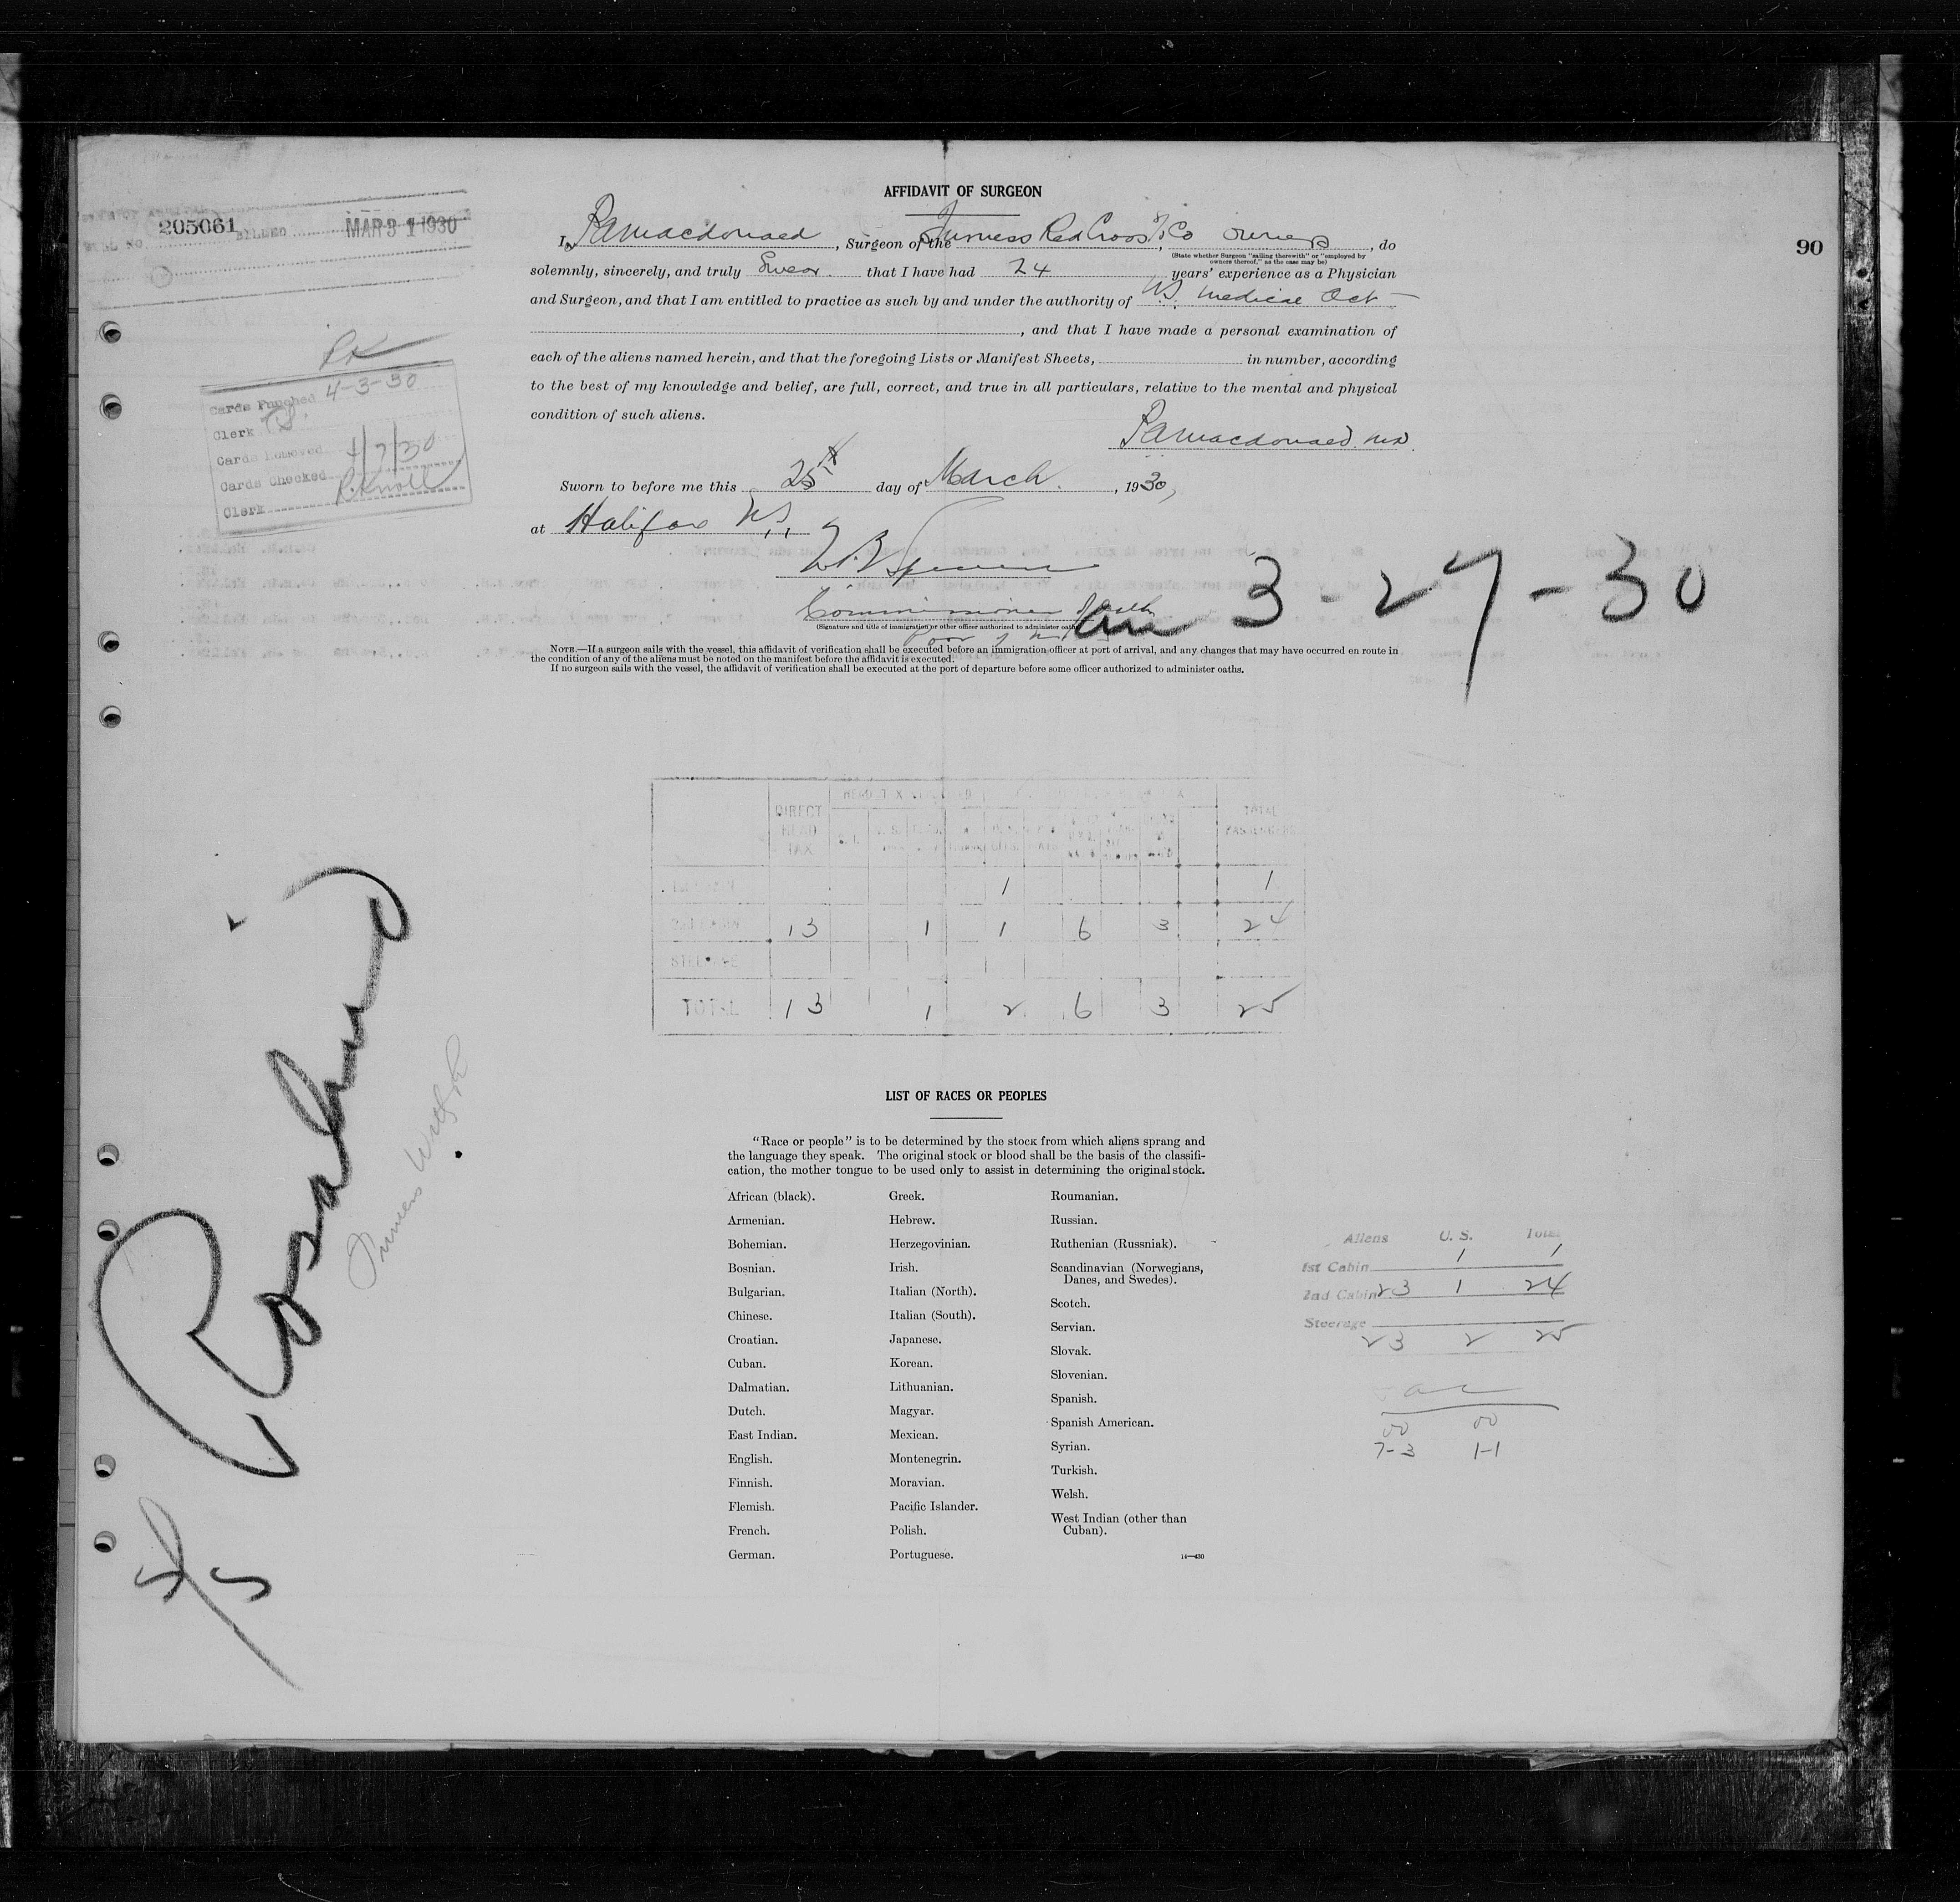 AFFIDAVIT OF SURGEON
205061
FILED
MAR 31 1930
90
I, , Surgeon of the Furness Red Cross Co owners, do
(State whether Surgeon "sailing therewith" or "employed by
owners thereof," as the case may be)
solemnly, sincerely, and truly Swear that I have had 24 years' experience as a Physician
and Surgeon, and that I am entitled to practice as such by and under the authority of N.S. Medical Act
, and that I have made a personal examination of
each of the aliens named herein, and that the foregoing Lists or Manifest Sheets, in number, according
to the best of my knowledge and belief, are full, correct, and true in all particulars, relative to the mental and physical
condition of such aliens.
Macdonald. MD
Sworn to before me this 25th day of March, 1930,
at Halifax N.S.
Commissioner
(Signature and title of immigration or other officer authorized to administer oaths)
3-27-30
NOTE.—If a surgeon sails with the vessel, this affidavit of verification shall be executed before an immigration officer at port of arrival, and any changes that may have occurred en route in
the condition of any of the aliens must be noted on the manifest before the affidavit is executed.
If no surgeon sails with the vessel, the affidavit of verification shall be executed at the port of departure before some officer authorized to administer oaths.
Cards Punched 4-3-30
Clerk
Cards Removed 4/7/30
Cards Checked R. Knoll
Clerk
DIRECT HEAD TAX
TOTAL PASSENGERS
1 1
13 1 1 6 3 24
STEERAGE
TOTAL 13 1 2 6 3 25
Rosalind
Furness Withy
LIST OF RACES OR PEOPLES
"Race or people" is to be determined by the stock from which aliens sprang and
the language they speak. The original stock or blood shall be the basis of the classifi-
cation, the mother tongue to be used only to assist in determining the original stock.
African (black).
Armenian.
Bohemian.
Bosnian.
Bulgarian.
Chinese.
Croatian.
Cuban.
Dalmatian.
Dutch.
East Indian.
English.
Finnish.
Flemish.
French.
German.
Greek.
Hebrew.
Herzegovinian.
Irish.
Italian (North).
Italian (South).
Japanese.
Korean.
Lithuanian.
Magyar.
Mexican.
Montenegrin.
Moravian.
Pacific Islander.
Polish.
Portuguese.
Roumanian.
Russian.
Ruthenian (Russniak).
Scandinavian (Norwegians,
Danes, and Swedes).
Scotch.
Servian.
Slovak.
Slovenian.
Spanish.
Spanish American.
Syrian.
Turkish.
Welsh.
West Indian (other than
Cuban).
14—430
Aliens U. S. Total
1st Cabin 1 1
2nd Cabin 23 1 24
Steerage
23 2 25
7-3 1-1